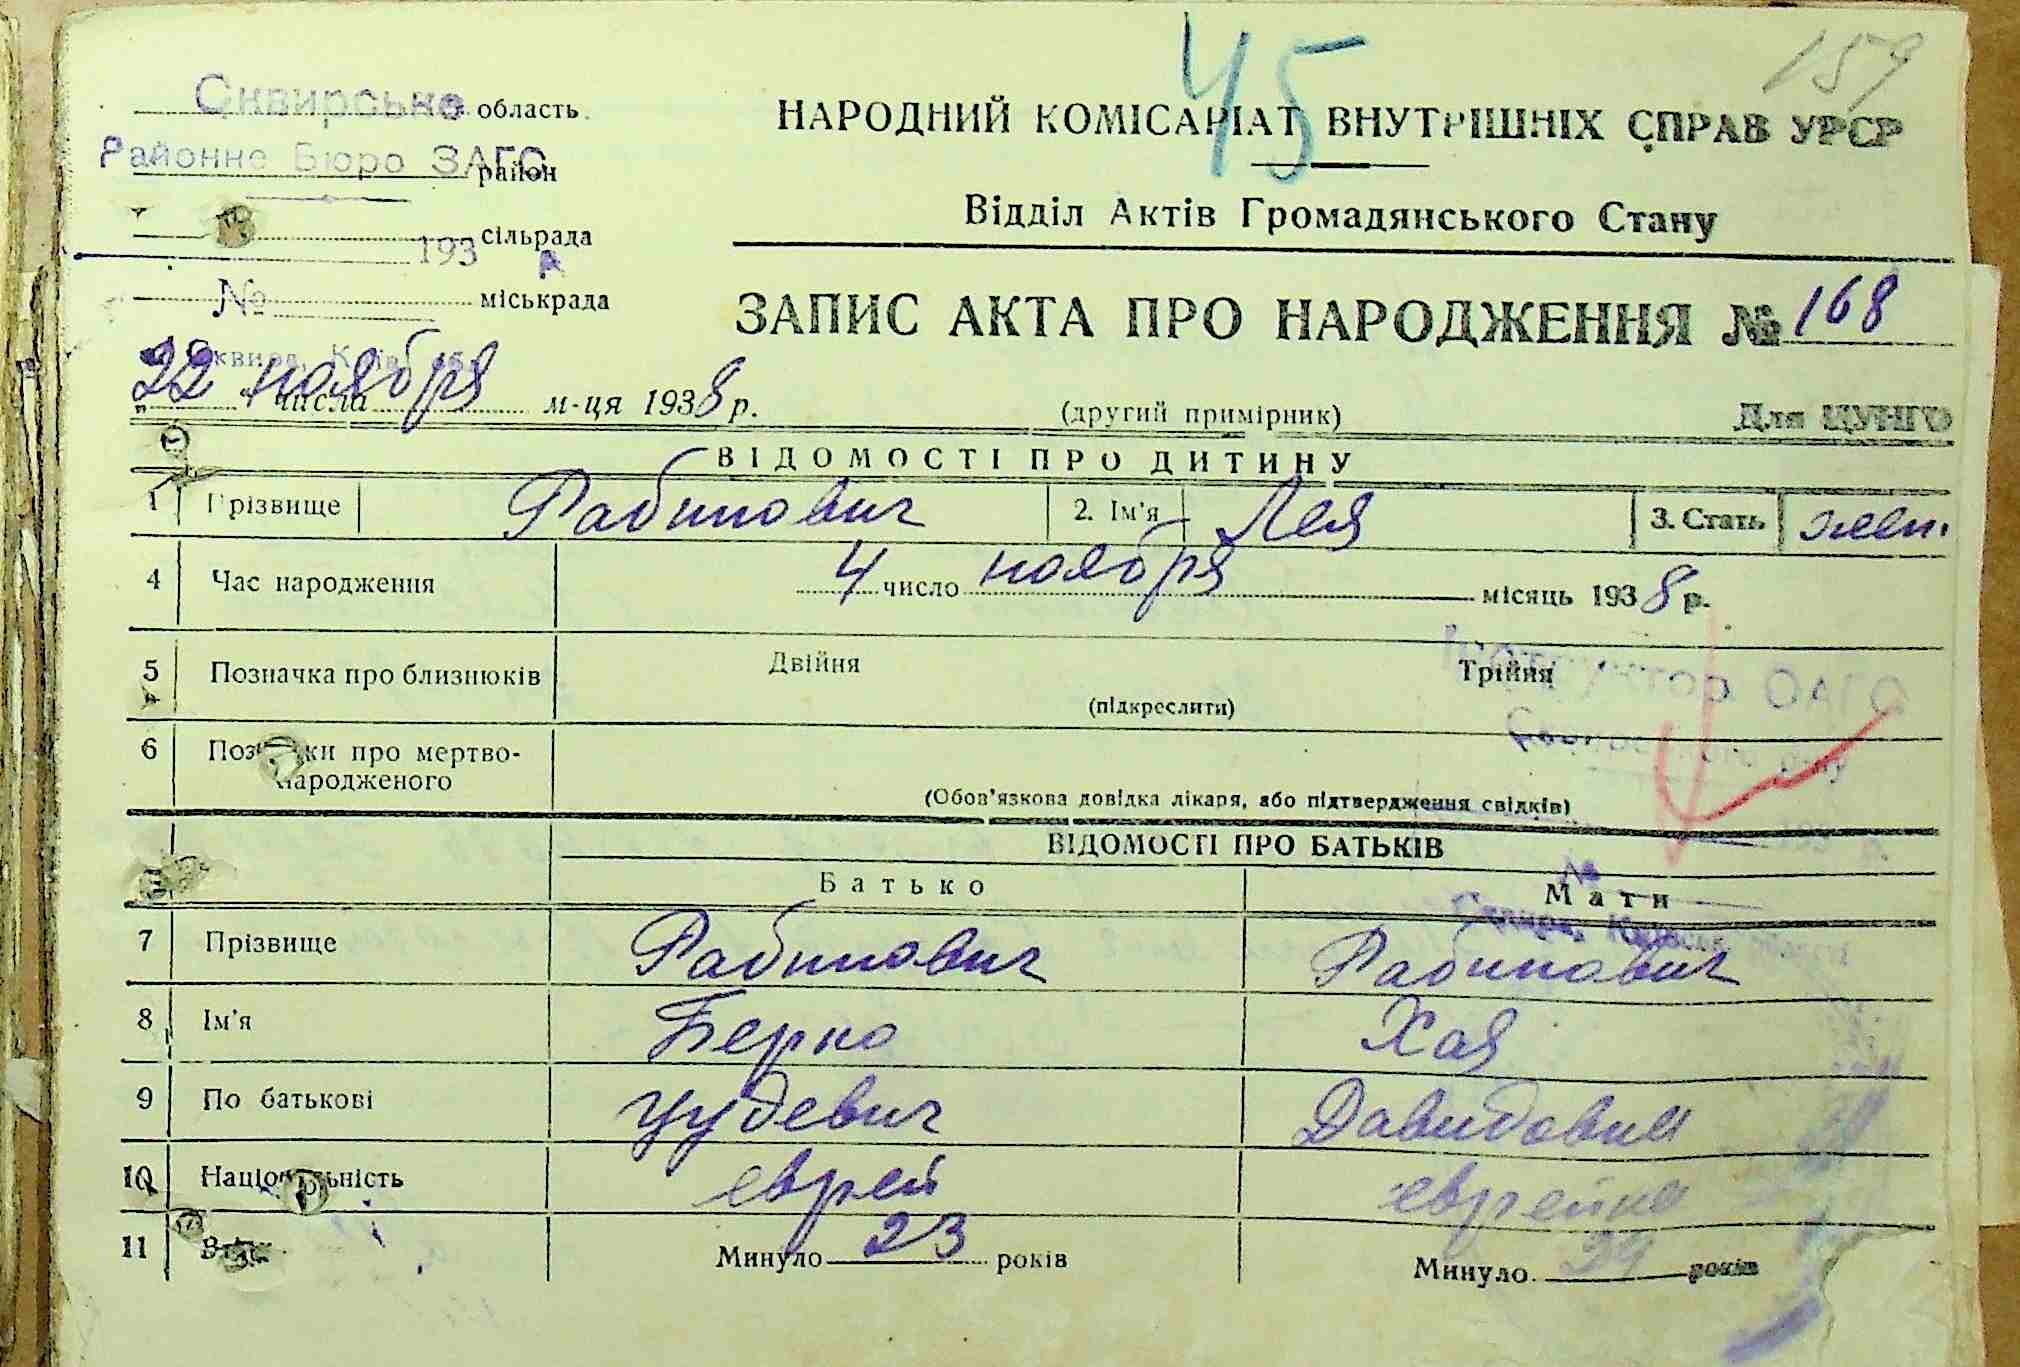 45
159
Сквирське область
Районне Бюро ЗАГС район
193 сільрада
№ міськрада
НАРОДНИЙ КОМІСАРІАТ ВНУТРІШНІХ СПРАВ УРСР
Відділ Актів Громадянського Стану
ЗАПИС АКТА ПРО НАРОДЖЕННЯ № 168
„22 числа ноября м-ця 1938 р.
(другий примірник) Для ЦУНГО
ВІДОМОСТІ ПРО ДИТИНУ
1 Прізвище Рабинович 2. Ім'я Лея 3. Стать жен.
4 Час народження 4 число ноября місяць 1938 р.
5 Позначка про близнюків Двійня Трійня
(підкреслити)
Інструктор ОАГС
6 Позначки про мертво-
народженого
(Обов'язкова довідка лікаря, або підтвердження свідків)
ВІДОМОСТІ ПРО БАТЬКІВ
Батько Мати
7 Прізвище Рабинович Рабинович
8 Ім'я Берко Хая
9 По батькові Иудевич Давидовна
10 Національність еврей еврейка
11 Минуло 23 років Минуло років